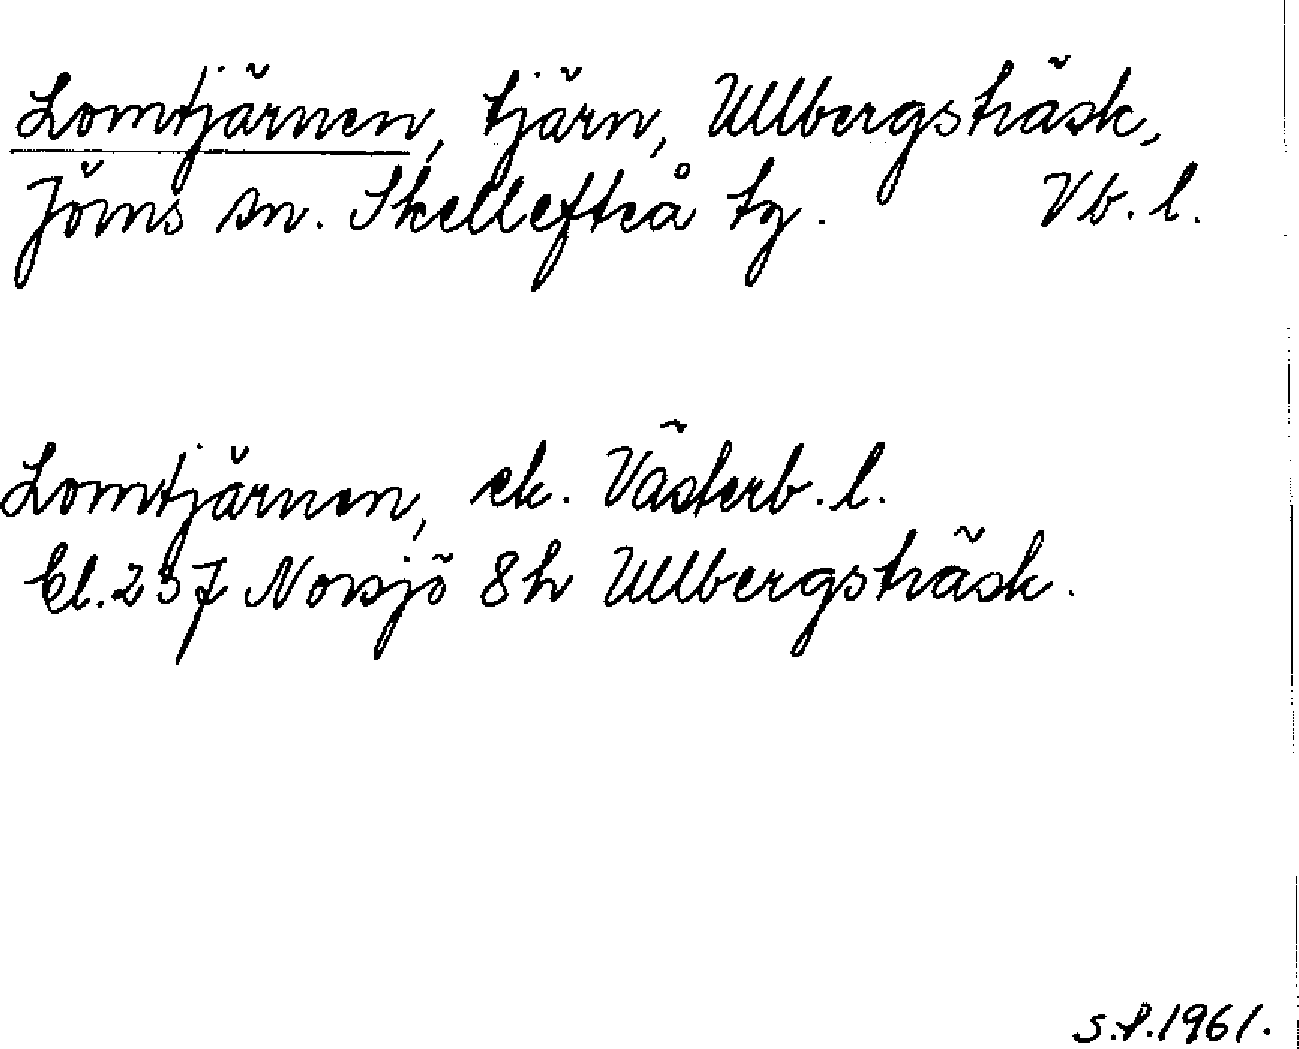 Lomtjärnen, tjärn, Ullbergsträsk,
Jörns sn. Skellefteå tg. Vb. l.
Lomtjärnen, ek. Västerb. l.
bl. 237 Norsjö 8h Ullbergsträsk.
s.f. 1961.